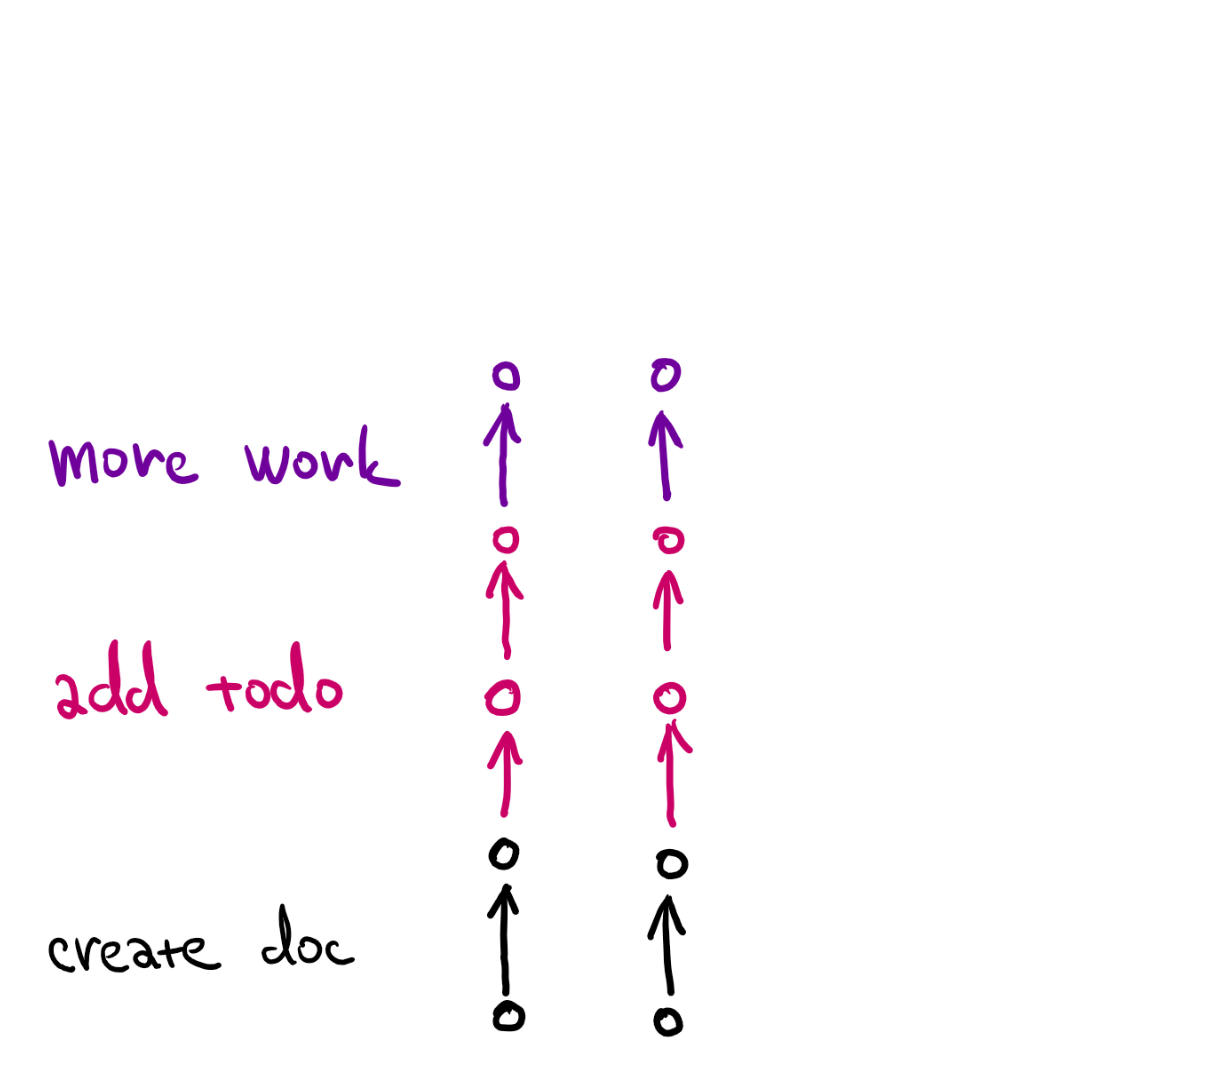 more work
add todo
create doc